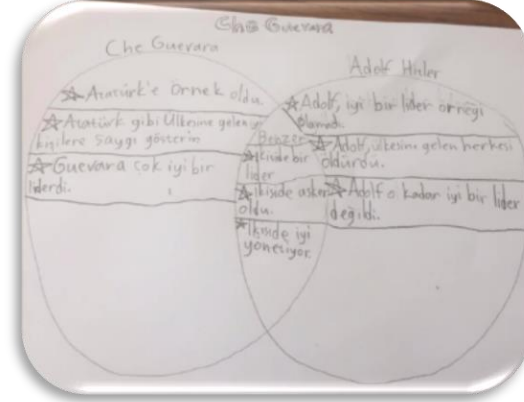 Che Guevara
Che Guevara
Adolf Hitler
☆Atatürk'e Örnek oldu.
☆Atatürk gibi Ülkesine gelen
kişilere Saygı gösterin
☆Guevara çok iyi bir
liderdi.
Benzer
☆İkiside bir
lider
☆İkiside asker
oldu.
☆İkiside iyi
yönetiyor.
☆Adolf, iyi bir lider örneği
olamadı.
☆Adolf, ülkesine gelen herkesi
öldürdü.
☆Adolf o kadar iyi bir lider
değildi.